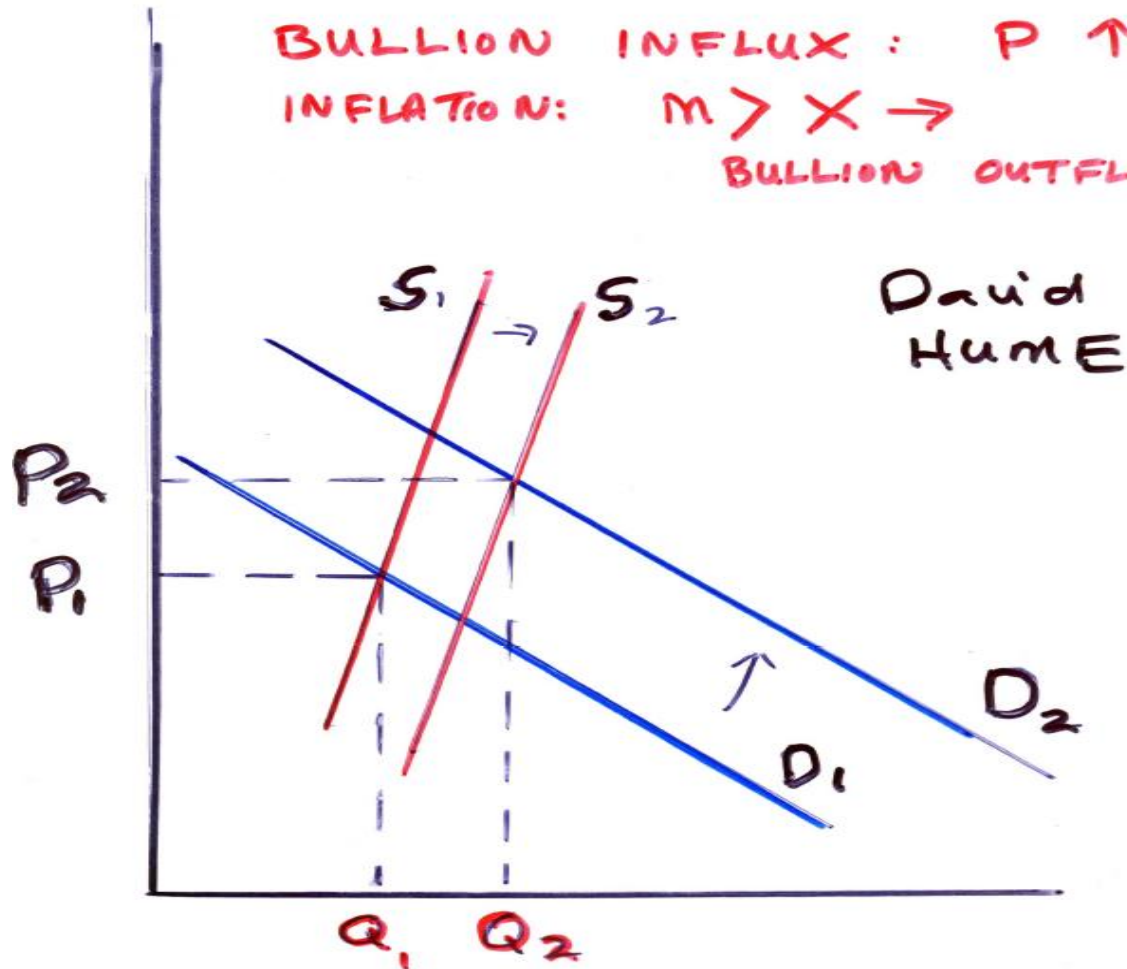 BULLION INFLUX: P ↑
INFLATION: m > X →
BULLION OUTFL
David
HUME
S₁ → S₂
P₂
P₁
D₂
D₁
Q₁ Q₂